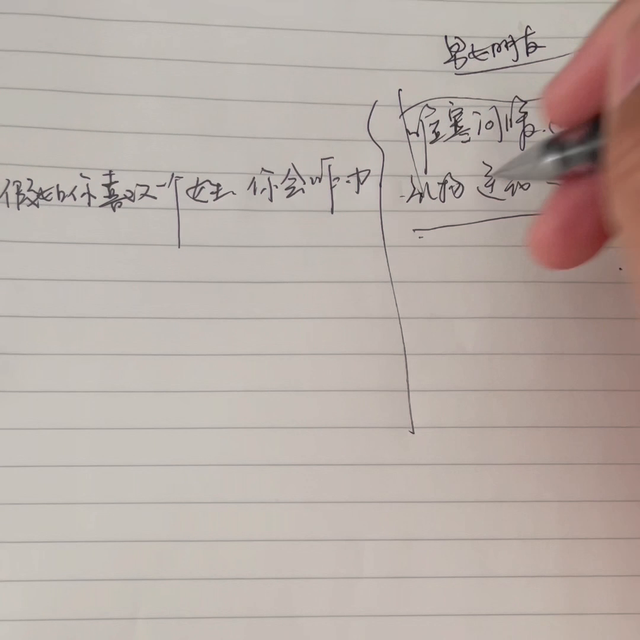 男女朋友
嘘寒问暖
礼物
假如你喜欢一个女生 你会咋办